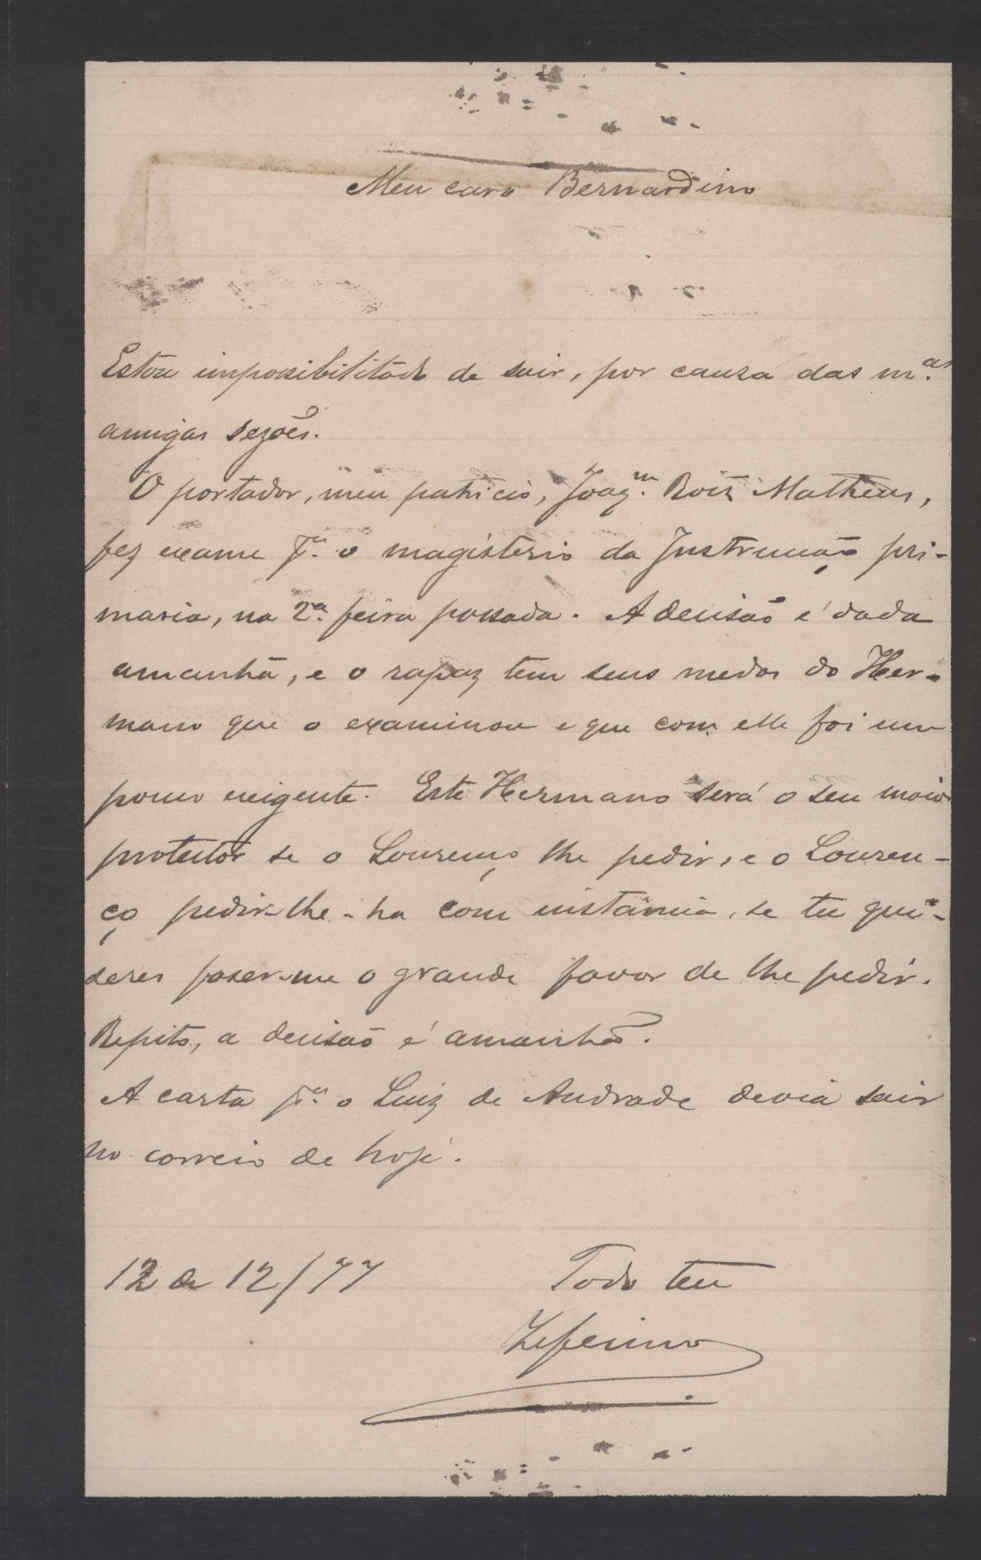 Meu caro Bernardino
Estou impossibilitado de sair, por causa das m.as
amigas sezões.
O portador, meu patricio, Joaq.m Roiz Matheus,
fez exame p.a o magisterio da Instrucção pri-
maria, na 2.a feira passada. A decisão é dada
amanhã, e o rapaz tem seus medos do Her-
mano que o examinou e que com elle foi um
pouco exigente. Este Hermano será o seu maior
protector se o Lourenço lhe pedir, e o Louren-
ço pedir-lhe-ha com instancia, se tu qui-
seres fazer-me o grande favor de lhe pedir.
Repito, a decisão é amanhã.
A carta p.a o Luiz de Andrade devia sair
no correio de hoje.
12 de 12/77
Todo teu
Zeferino